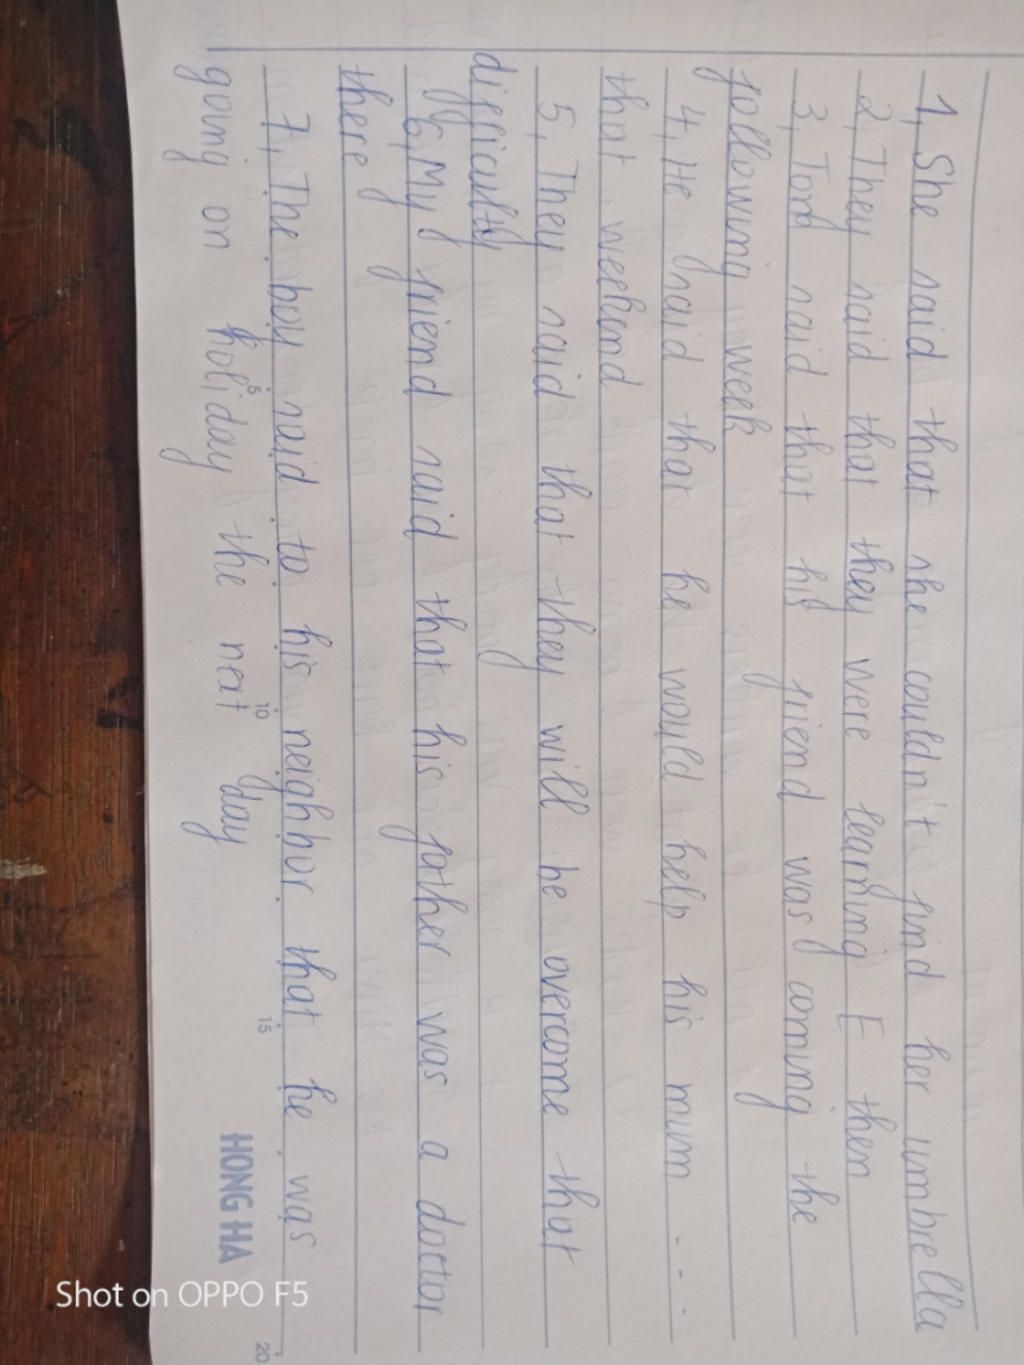 1, She said that she couldn't find her umbrella
2, They said that they were learning E then
3, Tom said that his friend was coming the
following week
4, He said that he would help his mum ....
that weekend
5, They said that they will be overcome that
difficulty
6, My friend said that his father was a doctor
there
7, The boy said to his neighbor that he was
going on holiday the next day
5
10
15
20
HONG HA
Shot on OPPO F5